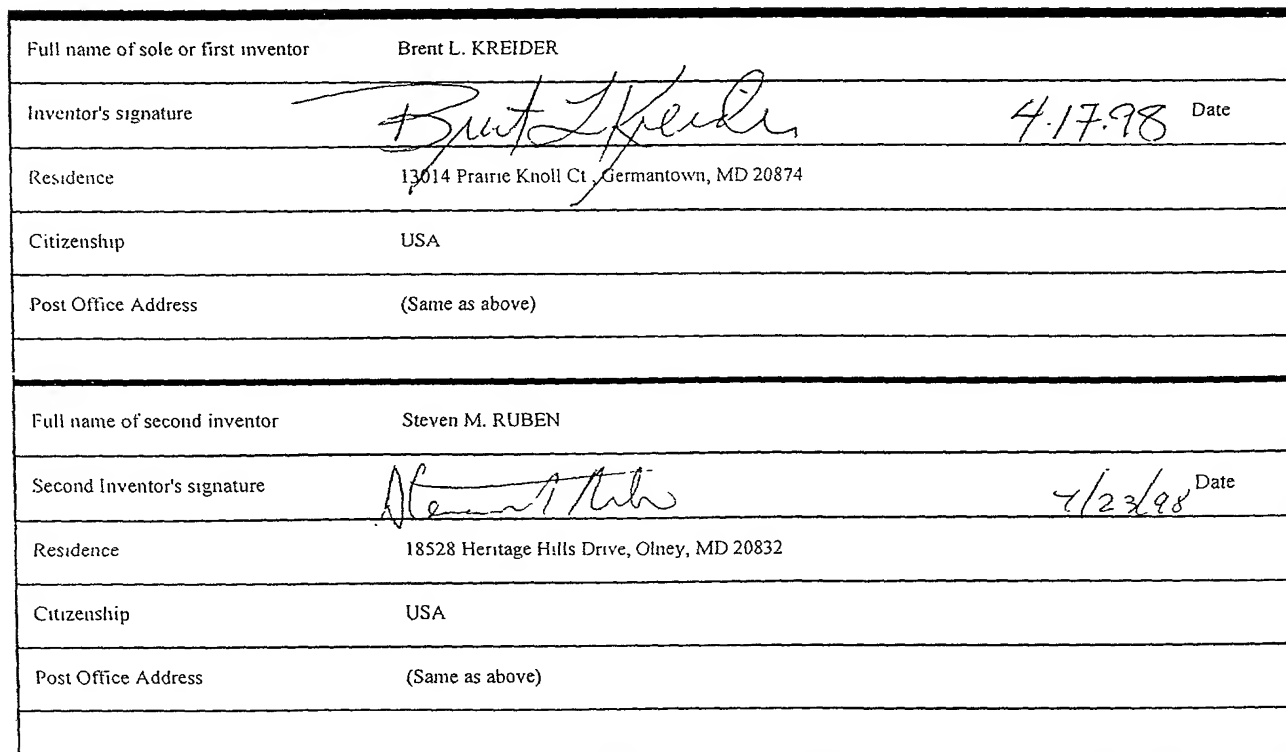 Full name of sole or first inventor Brent L. KREIDER
Inventor's signature Brent L Kreider 4.17.98 Date
Residence 13014 Prairie Knoll Ct , Germantown, MD 20874
Citizenship USA
Post Office Address (Same as above)
Full name of second inventor Steven M. RUBEN
Second Inventor's signature /23/98 Date
Residence 18528 Heritage Hills Drive, Olney, MD 20832
Citizenship USA
Post Office Address (Same as above)